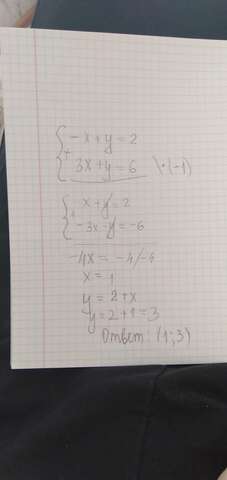 -x+y=2
+ 3x+y=6 \·(-1)
+ x+y=2
-3x-y=-6
-4x=-4/-4
x=1
y=2+x
y=2+1=3
Ответ: (1;3)